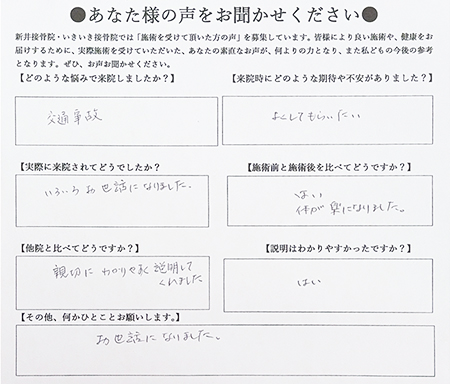 ●あなた様の声をお聞かせください●
新井接骨院・いきいき接骨院では「施術を受けて頂いた方の声」を募集しています。皆様により良い施術や、健康をお
届けするために、実際施術を受けていただいた、あなたの素直なお声が、何よりの力となり、また私どもの今後の参考
となります。ぜひ、お声お聞かせください。
【どのような悩みで来院しましたか？】
交通事故
【来院時にどのような期待や不安がありました？】
よくしてもらいたい
【実際に来院されてどうでしたか？
いろいろお世話になりました。
【施術前と施術後を比べてどうですか？】
はい
体が楽になりました。
【他院と比べてどうですか？】
親切にわかりやすく説明して
くれました
【説明はわかりやすかったですか？】
はい
【その他、何かひとことお願いします。】
お世話になりました。